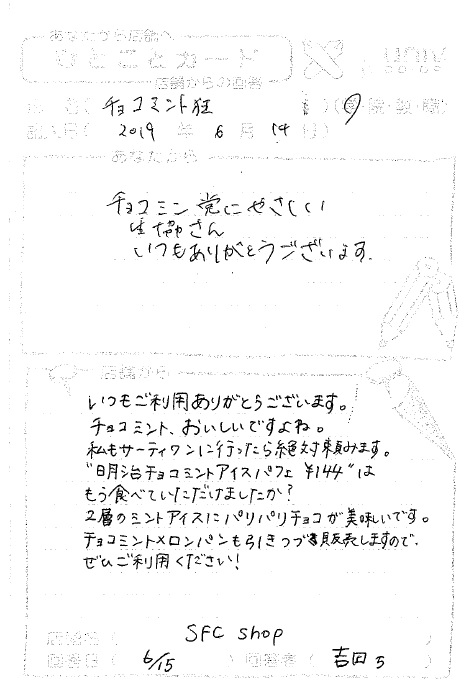 あなたから店舗へ
ひとことカード
店舗からの回答
氏 名( チョコミント狂
記入日( 2019 年 6 月 14 日)
あなたから
チョコミン党にやさしい
生協さん
いつもありがとうございます.
店舗から
いつもご利用ありがとうございます。
チョコミント、おいしいですよね。
私もサーティワンに行ったら絶対頼みます。
"明治チョコミントアイスパフェ ¥144"は
もう食べていただけましたか?
2層のミントアイスにパリパリチョコが美味しいです。
チョコミントメロンパンも引きつづき販売しますので、
ぜひご利用ください!
店舗名( SFC shop )
回答日( 6/15 ) 回答者( 吉田 )